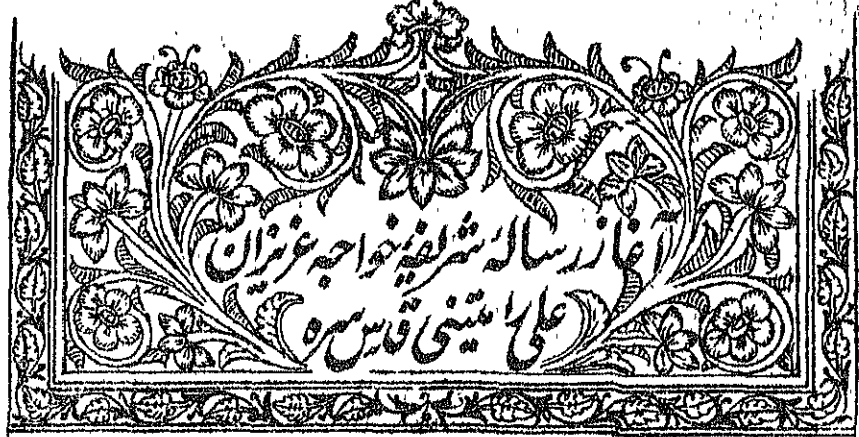 آغاز رسالهٔ شریفهٔ خواجه عزیزان
علی رامتینی قدس سره